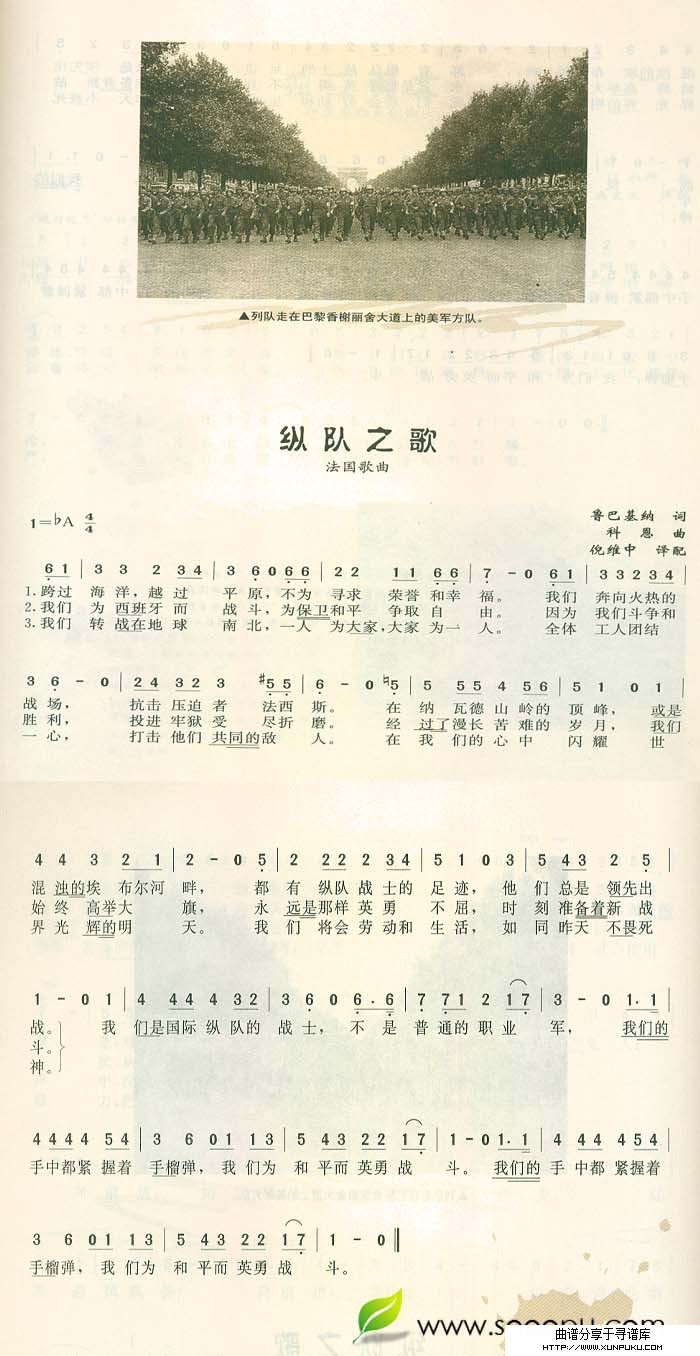 ▲列队走在巴黎香榭丽舍大道上的美军方队。
纵队之歌
法国歌曲
1=♭A 4/4
鲁巴基纳 词
科恩 曲
倪维中 译配
6 1 | 3 3 2 3 4 | 3 6 0 6 6 | 2 2 1 1 6 6 | 7 - 0 6 1 | 3 3 2 3 4 |
1.跨过 海洋，越过 平原，不为 寻求 荣誉 和幸 福。 我们 奔向火热的
2.我们 为 西班牙而 战斗，为保卫和平 争取 自 由。 因为 我们斗争和
3.我们 转 战在地球 南北，一人 为大家，大家 为一 人。 全体 工人团结
3 6 - 0 | 2 4 3 2 3 #5 5 | 6 - 0 ♮5 | 5 5 5 4 5 6 | 5 1 0 1 |
战场， 抗击 压迫 者 法西 斯。 在 纳 瓦德 山岭的 顶峰，或是
胜利， 投进 牢狱 受 尽折 磨。 经 过了漫长 苦难的 岁月，我们
一心， 打击 他们 共同的敌 人。 在 我 们的 心中 闪耀 世
4 4 3 2 1 | 2 - 0 5 | 2 2 2 2 3 4 | 5 1 0 3 | 5 4 3 2 5 |
混 浊的埃 布尔河 畔， 都 有 纵队 战士的 足迹，他 们 总是 领先出
始终 高举大 旗， 永 远是那样 英勇 不屈，时 刻 准备着新 战
界光 辉的明 天。 我 们 将会 劳动和 生活，如 同 昨天 不畏死
1 - 0 1 | 4 4 4 4 3 2 | 3 6 0 6·6 | 7 7 1 2 1 7 | 3 - 0 1·1 |
战。 我 们是国际 纵队的 战士，不 是 普 通的 职业 军， 我们的
斗。
神。
4 4 4 4 5 4 | 3 6 0 1 1 3 | 5 4 3 2 2 1 7 | 1 - 0 1·1 | 4 4 4 4 5 4 |
手中都紧 握着 手榴弹，我 们为 和 平而 英勇 战 斗。我们的 手 中都 紧握着
3 6 0 1 1 3 | 5 4 3 2 2 1 7 | 1 - 0 ‖
手榴弹，我 们为 和 平而 英勇 战 斗。
www.sooopu.com
曲谱分享于寻谱库
HTTP://WWW.XUNPUKU.COM